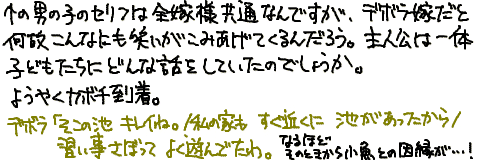 ↑の男の子のセリフは全嫁様共通なんですが、デボラ嫁だと
何故こんなにも笑いがこみあげてくるんだろう。主人公は一体
子どもたちにどんな話をしていたのでしょうか。
ようやくサボチ到着。
デボラ「そこの池 キレイね。私の家も すぐ近くに 池があったから
習い事さぼって よく遊んでたわ。」
なるほど
そのときから小魚との因縁が…!